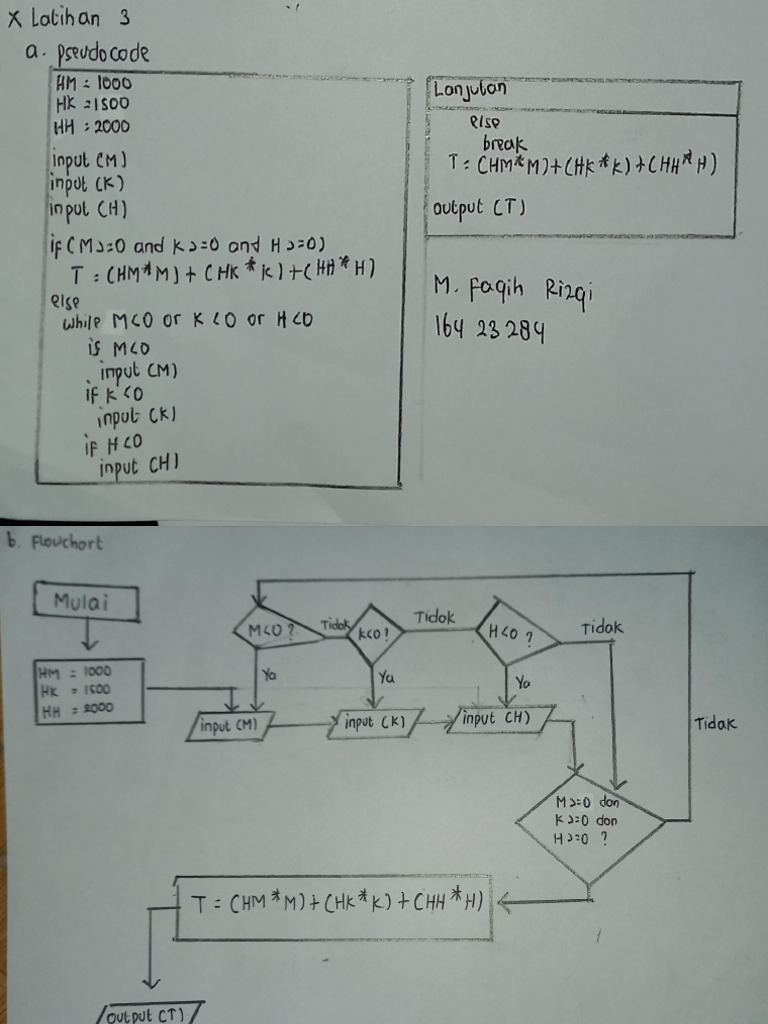 x Latihan 3
a. Pseudocode
HM = 1000
HK = 1500
HH = 2000
input (M)
input (K)
input (H)
if (M>=0 and K>=0 and H>=0)
T = (HM*M) + (HK*K) + (HH*H)
else
while M<0 or K<0 or H<0
if M<0
input (M)
if K<0
input (K)
if H<0
input (H)
Lanjutan
else
break
T = (HM*M) + (HK*K) + (HH*H)
output (T)
M. Faqih Rizqi
164 23 284
b. Flowchart
Mulai
HM = 1000
HK = 1500
HH = 2000
M<0 ?
Tidak
K<0 ?
Tidak
H<0 ?
Tidak
Ya
Ya
Ya
input (M)
input (K)
input (H)
Tidak
M>=0 dan
K>=0 dan
H>=0 ?
T = (HM*M) + (HK*K) + (HH*H)
output (T)